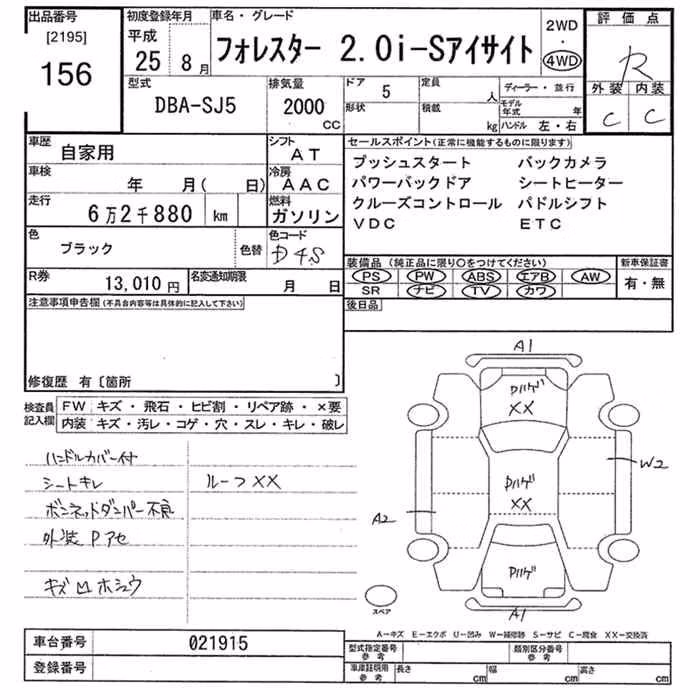 出品番号
[2195]
156
初度登録年月
平成
25年 8月
車名・グレード
フォレスター 2.0i-Sアイサイト
2WD
・
4WD
評価点
R
外装 内装
C C
型式
DBA-SJ5
排気量
2000
CC
ドア 5
定員 人
形状
積載 kg
ディーラー・並行
モデル年式 年
ハンドル 左・右
車歴
自家用
シフト
AT
車検
年 月( 日)
冷房
AAC
走行
6万2千880 km
燃料
ガソリン
色
ブラック
色替
色コード
D4S
R券
13,010円
名変通知期限
月 日
セールスポイント(正常に機能するものに限ります)
プッシュスタート バックカメラ
パワーバックドア シートヒーター
クルーズコントロール パドルシフト
VDC ETC
装備品(純正品に限り○をつけてください)
PS PW ABS エアB AW
SR ナビ TV カワ
新車保証書
有・無
後日品
注意事項申告欄(不具合内容等は具体的に記入して下さい)
修復歴 有〔箇所 〕
検査員記入欄
FW キズ・飛石・ヒビ割・リペア跡・×要
内装 キズ・汚レ・コゲ・穴・スレ・キレ・破レ
ハンドルカバー付
シートキレ
ルーフ XX
ボンネットダンパー不良
外装 Pアセ
キズ凹ホシュウ
A1
Pハゲ
XX
W2
Pハゲ
XX
A2
Pハゲ
A1
スペア
A−キズ E−エクボ U−凹み W−補修跡 S−サビ C−腐食 XX−交換済
車台番号 021915
登録番号
型式指定番号
参考
類別区分番号
参考
車庫証明用
参考
長さ cm 幅 cm 高さ cm